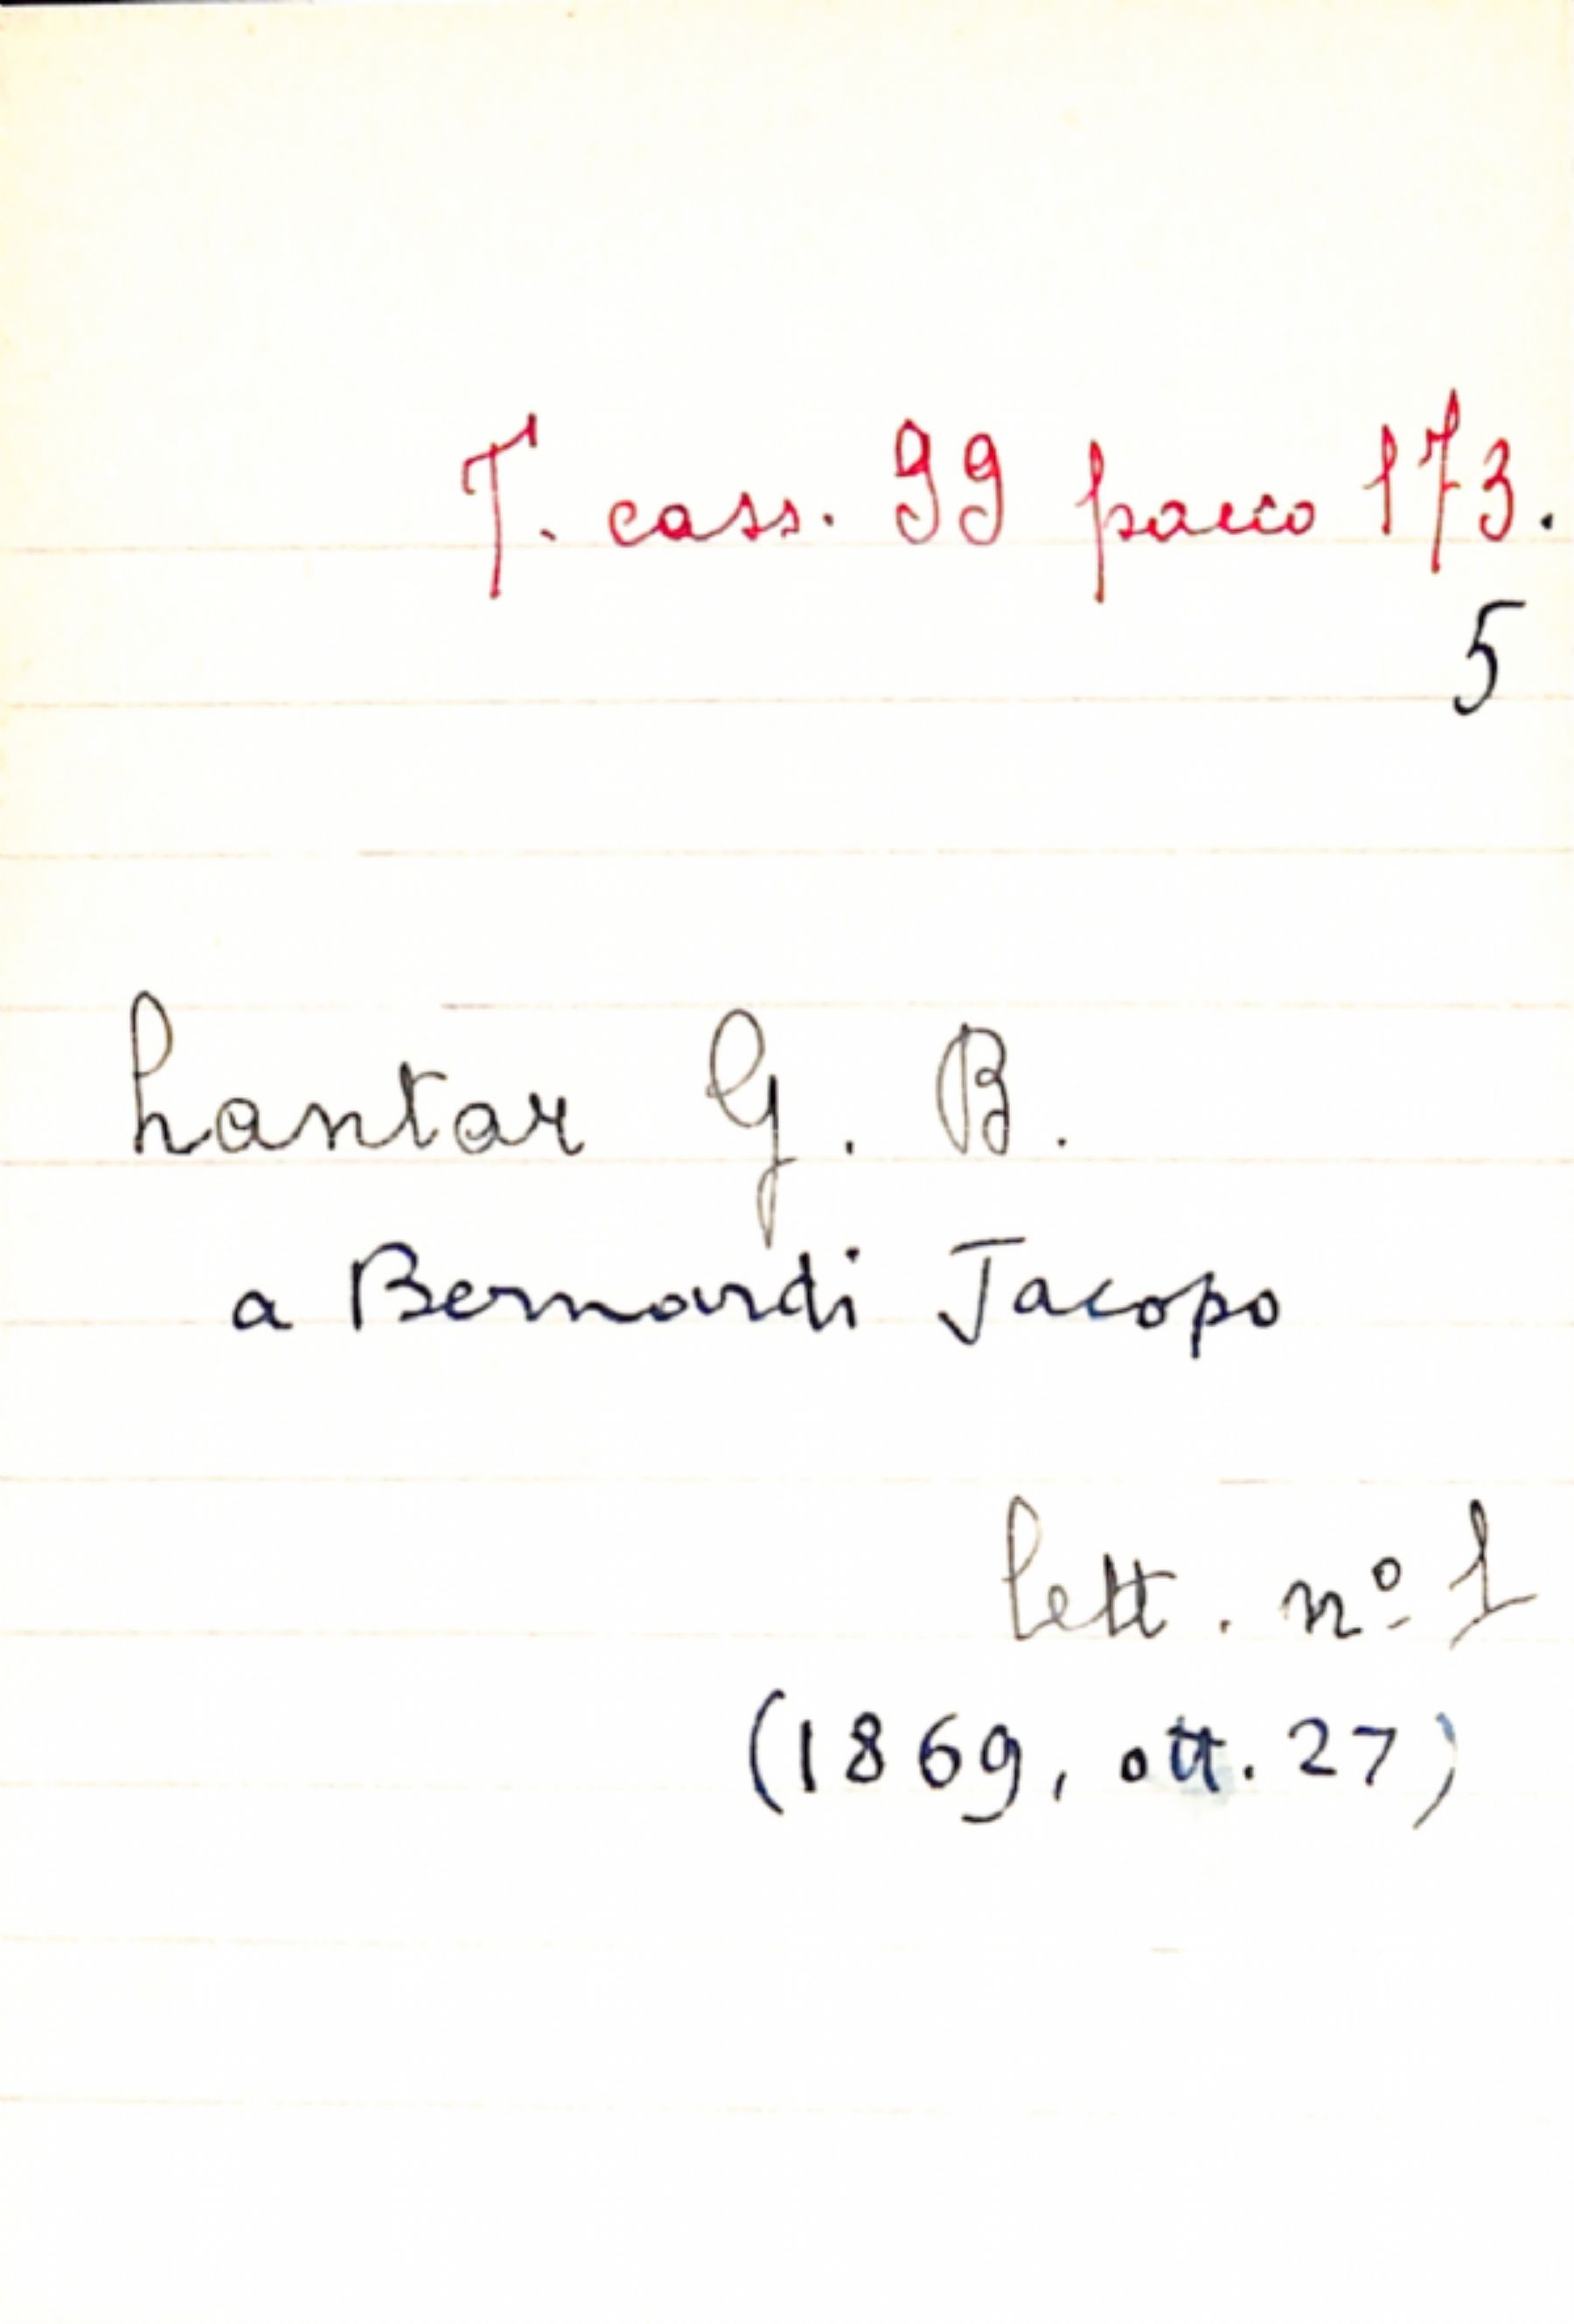 T. cass. 99 pacco 173.
5
Lantar G. B.
a Bernardi Jacopo
lett. nº 1
(1869, ott. 27)